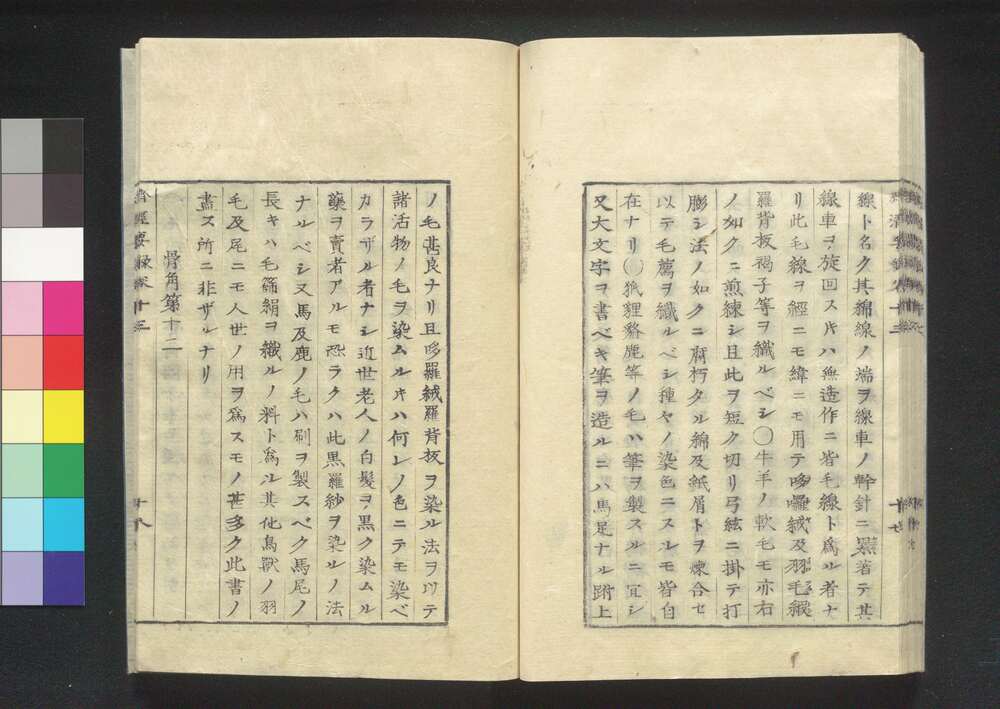 線ト名ク其綿線ノ端ヲ線車ノ幹針ニ 著テ其
線車ヲ旋回スㇳキハ無造作ニ皆毛線ト爲ル者ナ
リ此毛線ヲ經ニモ緯ニモ用テ哆囉絨及羽毛緞
羅背板褐子等ヲ織ルベシ〇牛羊ノ軟毛モ亦右
ノ如クニ煎練シ且此ヲ短ク切リ弓絃ニ掛テ打
膨シ法ノ如クニ腐朽タル綿及紙屑トヲ煉合セ
以テ毛薦ヲ織ルベシ種々ノ染色ニスルモ皆白
在ナリ〇狐貍貉鹿等ノ毛ハ筆ヲ製スルニ冝シ
又大文字ヲ書ベキ筆ヲ造ルニハ馬足ナル跗上
ノ毛甚良ナリ且哆羅絨羅背板ヲ染ル法ヲ以テ
諸活物ノ毛ヲ染ムルㇳキハ何レノ色ニテモ染ベ
カラザル者ナシ近世老人ノ白髮ヲ黒ク染ムル
藥ヲ賣者アルモ恐ラクハ此黒羅紗ヲ染ルノ法
ナルベシ又馬及鹿ノ毛ハ刷ヲ製スベク馬尾ノ
長キハ毛篩絹ヲ織ルノ料ト爲ル其他鳥獸ノ羽
毛及尾ニモ人世ノ用ヲ爲スモノ甚多ク此書ノ
盡ス所ニ非ザルナリ
骨角第十二
濟經要錄卷十三
十八